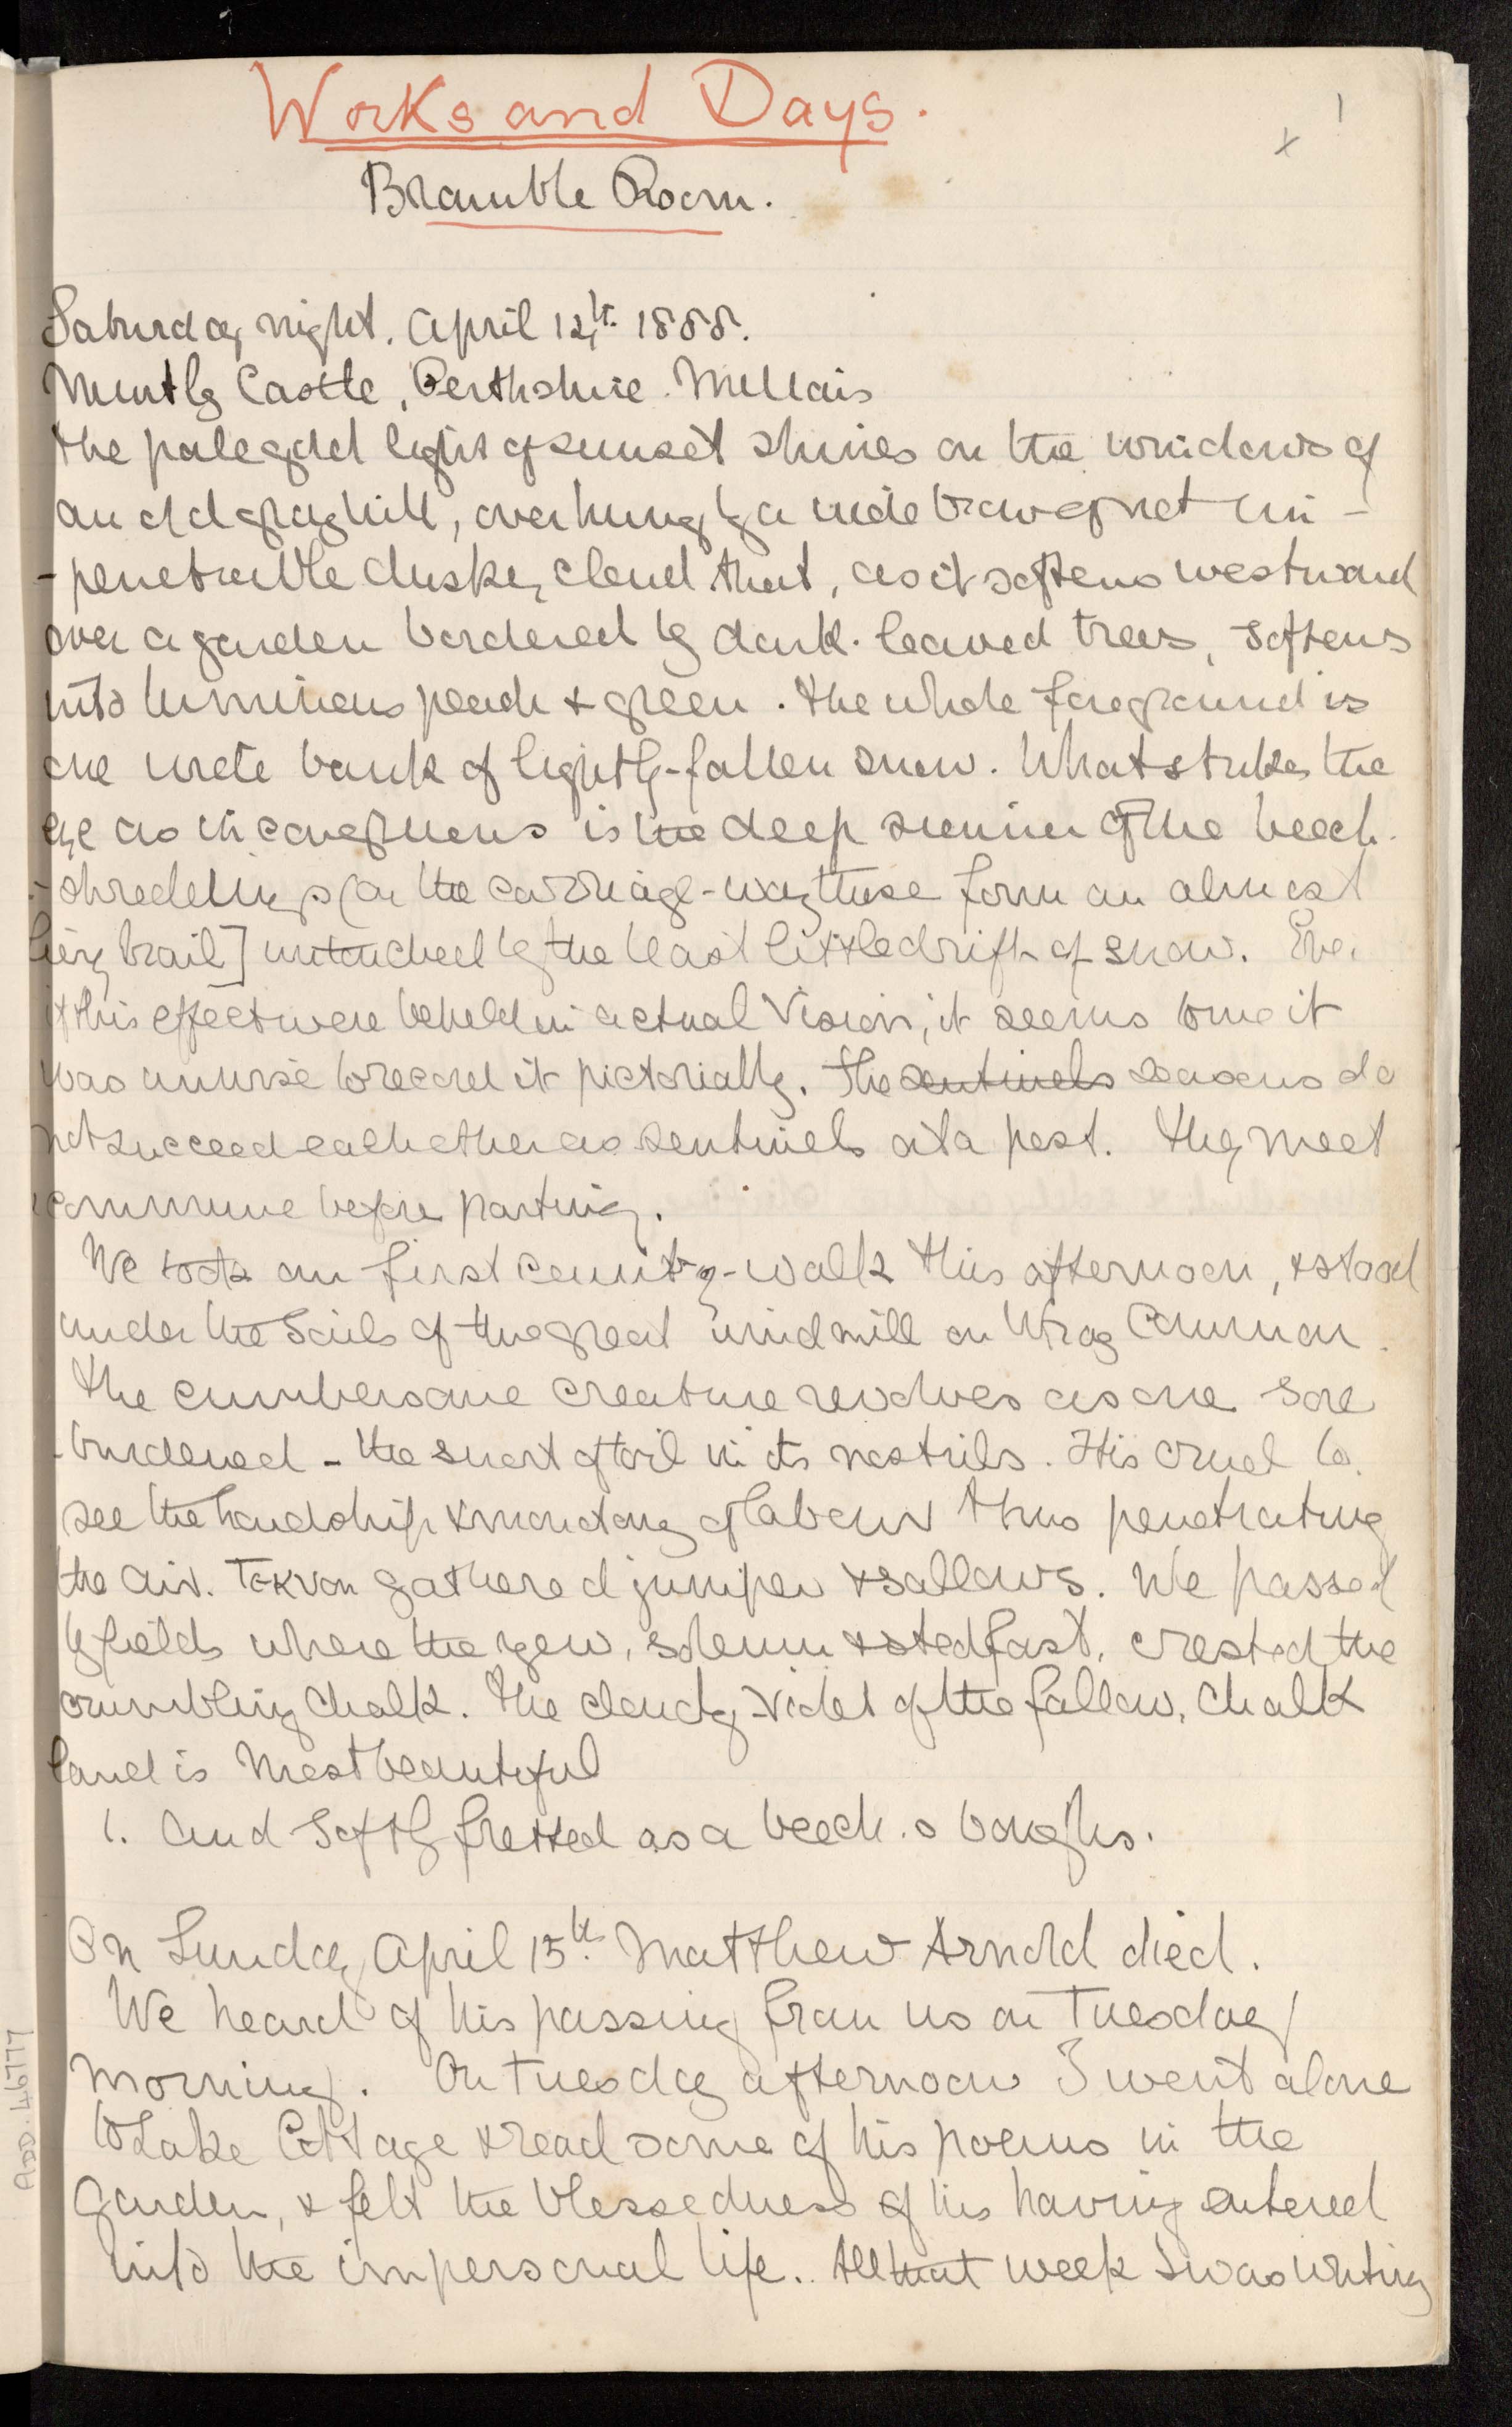 Works and Days.
1
x
Bramble Room.
Saturday night. April 12th. 1888.
Murtly Castle, Perthshire. Millais
The pale gold light of sunset shines on the windows of
an old gray hill, overhung by a wide brow of wet im-
-penetrable dusky cloud that, as it softens westward
over a garden bordered by dark-leaved trees, softens
into luminous peach & green. The whole foreground is
one wide bank of lightly-fallen snow. What strikes the
eye as incongruous is the deep sienna of the beech-
-shreddings (on the carriage-way these form an almost
fiery trail] untouched by the least little drift of snow. Even
if this effect were beheld in actual vision, it seems to me it
was unwise to record it pictorially. The sentinels seasons do
not succeed each other as sentinels at a post. They meet
commune before parting.
We took our first country-walk this afternoon, & stood
under the sails of the great windmill on Wray Common.
The cumbersome creature revolves as one sore
burdened - the snort of toil in its nostrils. It is cruel to
see the hardship & monotony of labour thus penetrating
the air. Tekvon gathered juniper & sallows. We passed
by fields where the yew, solemn & stedfast, crested the
crumbling chalk. The cloudy violet of the fallow, chalk
land is most beautiful
1. And softly fretted as a beech's boughs.
On Sunday April 15th. Matthew Arnold died.
We heard of his passing from us on Tuesday
morning. On Tuesday afternoon I went alone
to Lake Cottage & read some of his poems in the
garden, & felt the blessedness of his having entered
into the impersonal life. All that week I was writing
ADD. 46777